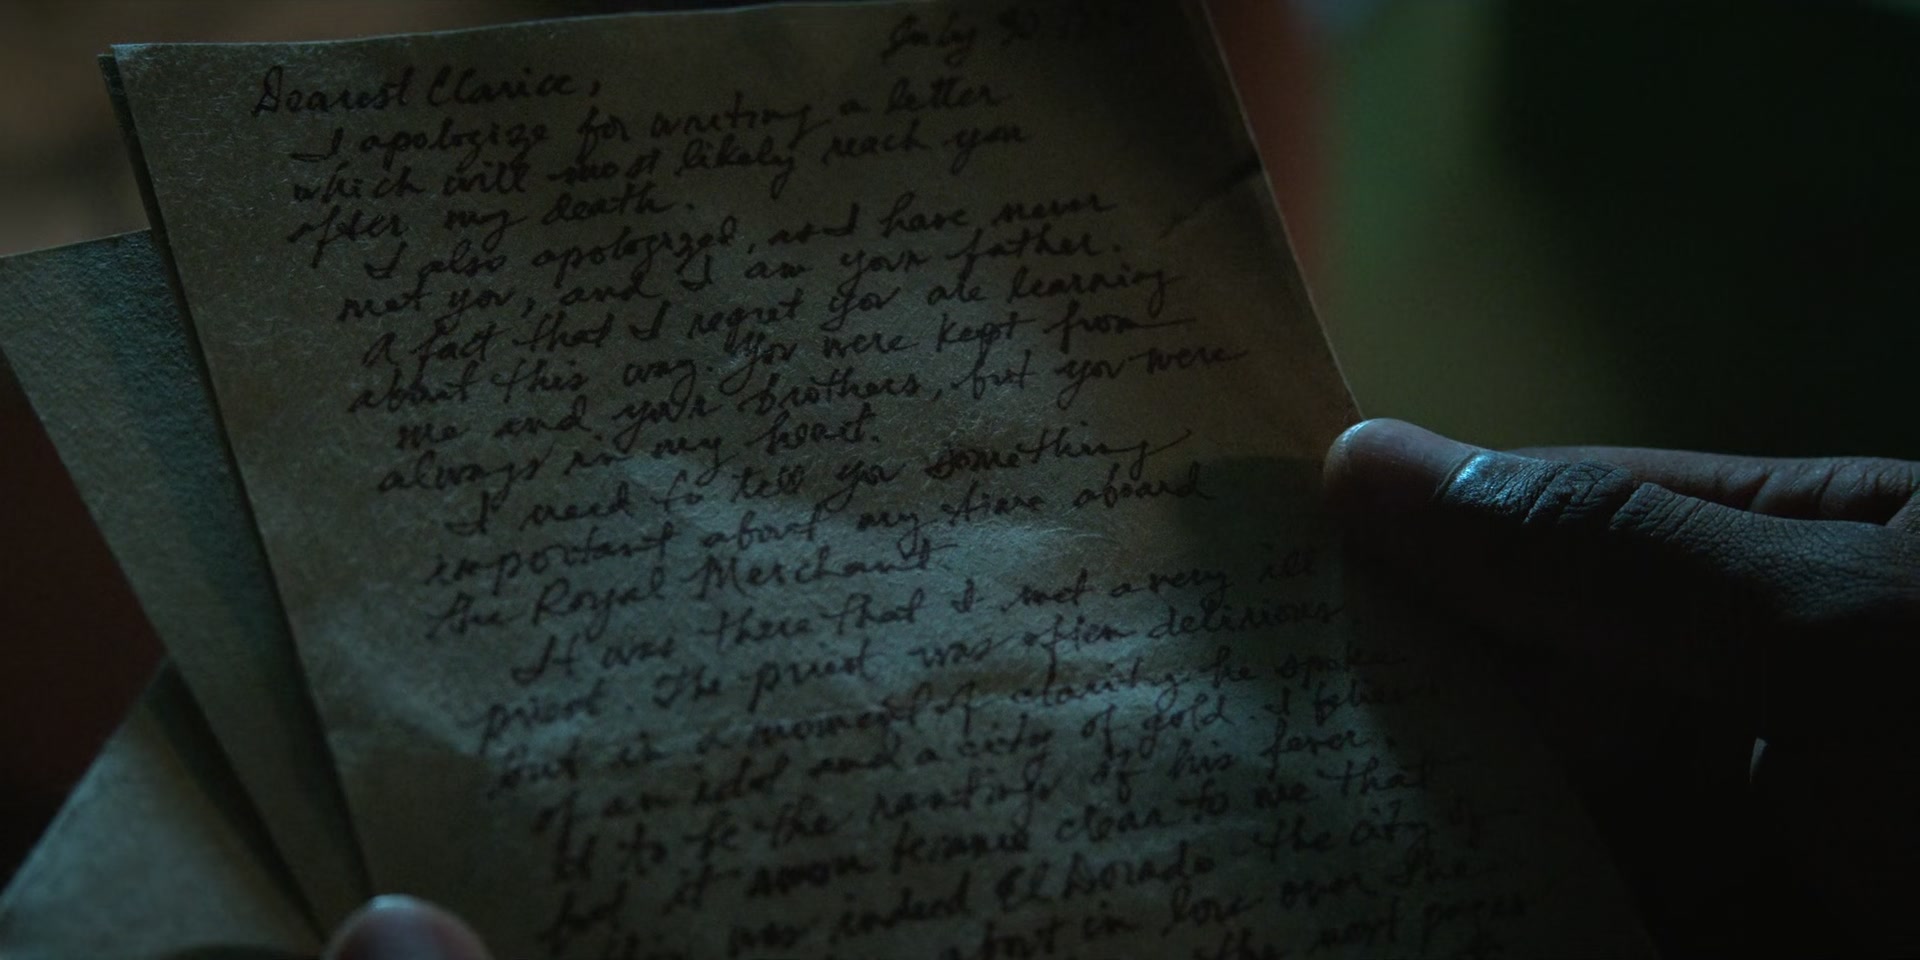 July 30
Dearest Clarice,
I apologize for writing a letter
which will most likely reach you
after my death.
I also apologized, as I have never
met you, and I am your father.
A fact that I regret you are learning
about this way. You were kept from
me and your brothers, but you were
always in my heart.
I need to tell you something
important about my time aboard
the Royal Merchant.
It was there that I met a very ill
priest. The priest was often delirious
but in a moment of clarity he spoke
of an idol and a city of gold. I
it to be the rantings of his fever.
but it soon became clear to me that
was indeed El Dorado the city of
in love over
the most